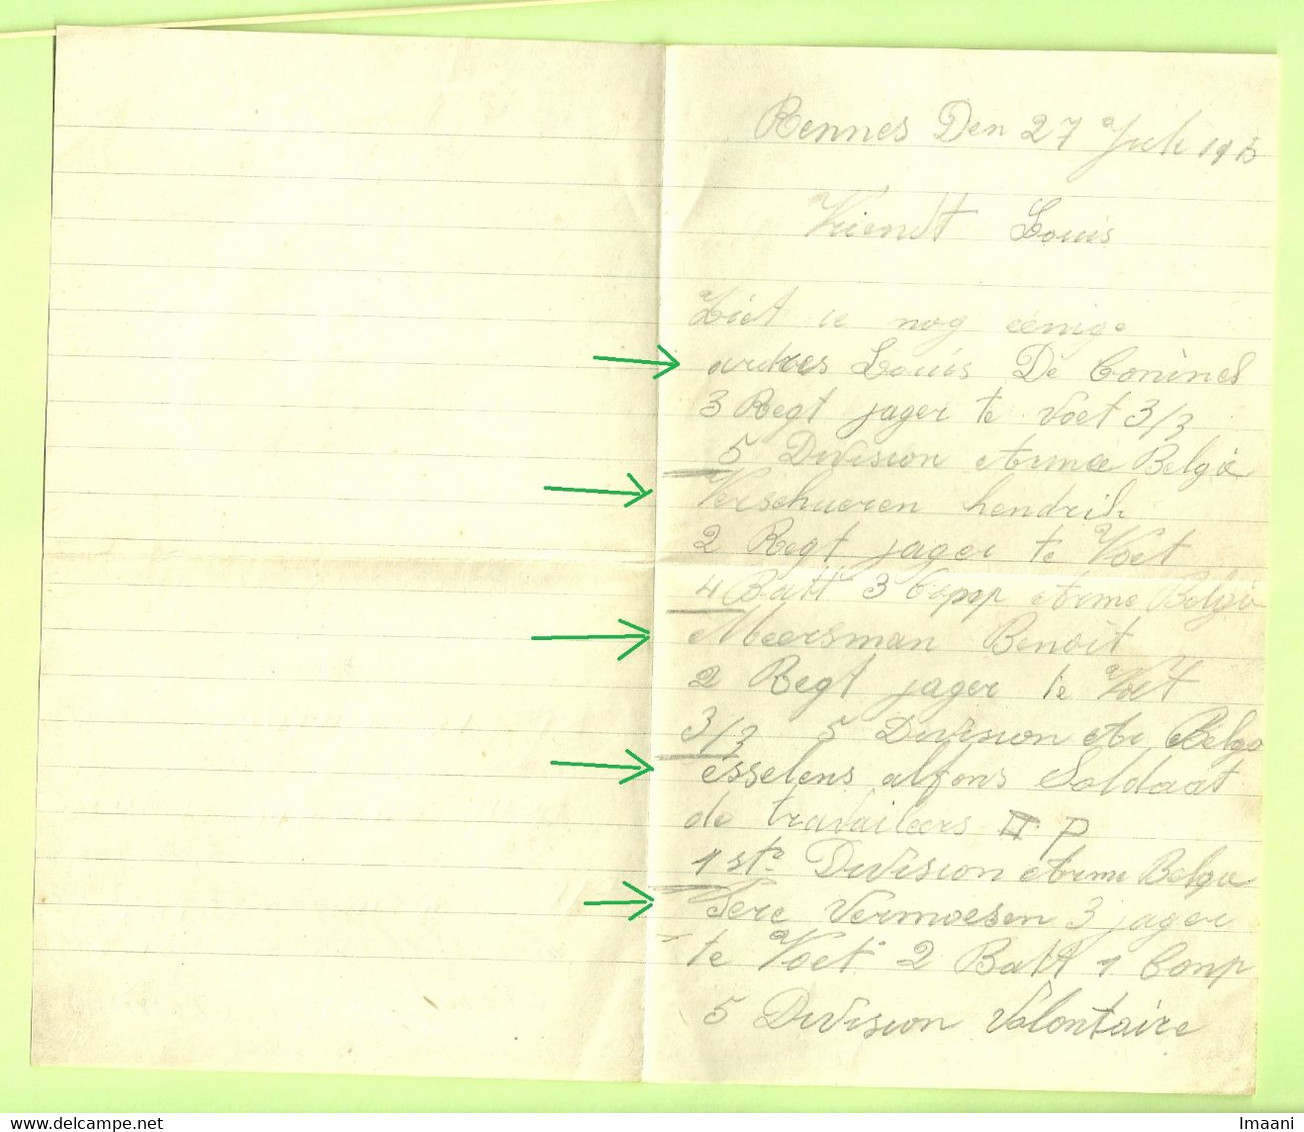 Rennes Den 27 Juli 1915
Vriendt Louis
Ziet ie nog eenige
ardres Louis De Coninck
3 Regt jager te voet 3/3
5 Division Armee Belge
Verschueren hendrik
2 Regt jager te Voet
4 Batt 3 Comp Arme Belge
Meersman Benoit
2 Regt jager te Voet
3/3 5 Division Ar Belge
esselens alfons Soldaat
de travaileers II P
1ste Division Arme Belge
Vermoesen 3 jager
te Voet 2 Batt 1 Comp
5 Division Volontaire
www.delcampe.net
Imaani